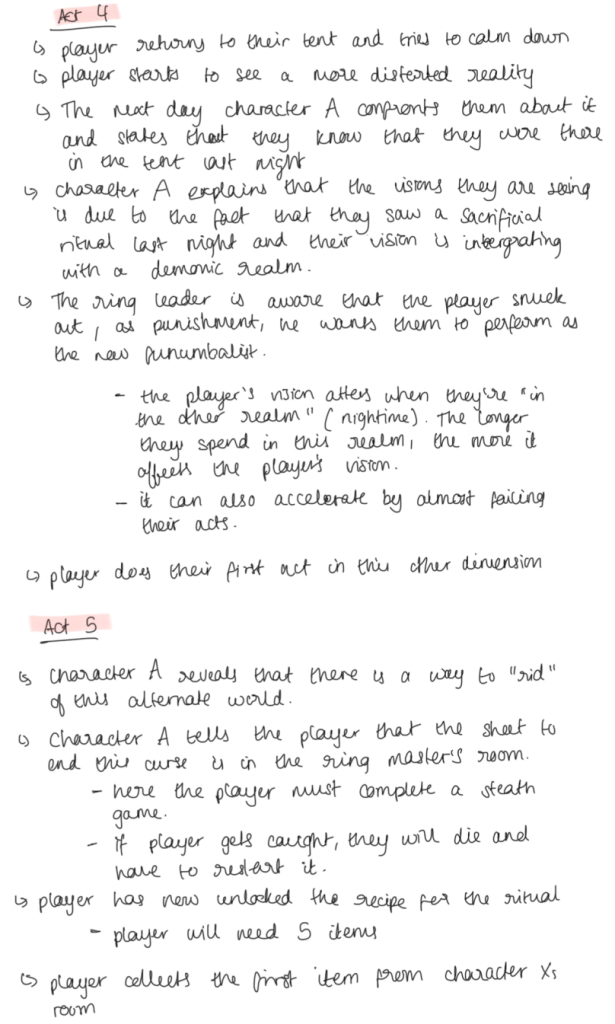 Act 4
↳ player returns to their tent and tries to calm down
↳ player starts to see a more distorted reality
↳ The next day character A confronts them about it
and states that they know that they were there
in the tent last night
↳ character A explains that the visions they are seeing
is due to the fact that they saw a sacrificial
ritual last night and their vision is intergrating
with a demonic realm.
↳ The ring leader is aware that the player snuck
out, as punishment, he wants them to perform as
the new funumbalist.
- the player's vision alters when they're "in
the other realm" (nightime). The longer
they spend in this realm, the more it
affects the player's vision.
- it can also accelerate by almost failing
their acts.
↳ player does their first act in this other dimension
Act 5
↳ Character A reveals that there is a way to "rid"
of this alternate world.
↳ Character A tells the player that the sheet to
end this curse is in the ring master's room.
- here the player must complete a steath
game.
- If player gets caught, they will die and
have to restart it.
↳ player has now unlocked the recipe for the ritual
- player will need 5 items
↳ player collects the first item from character Xs
room